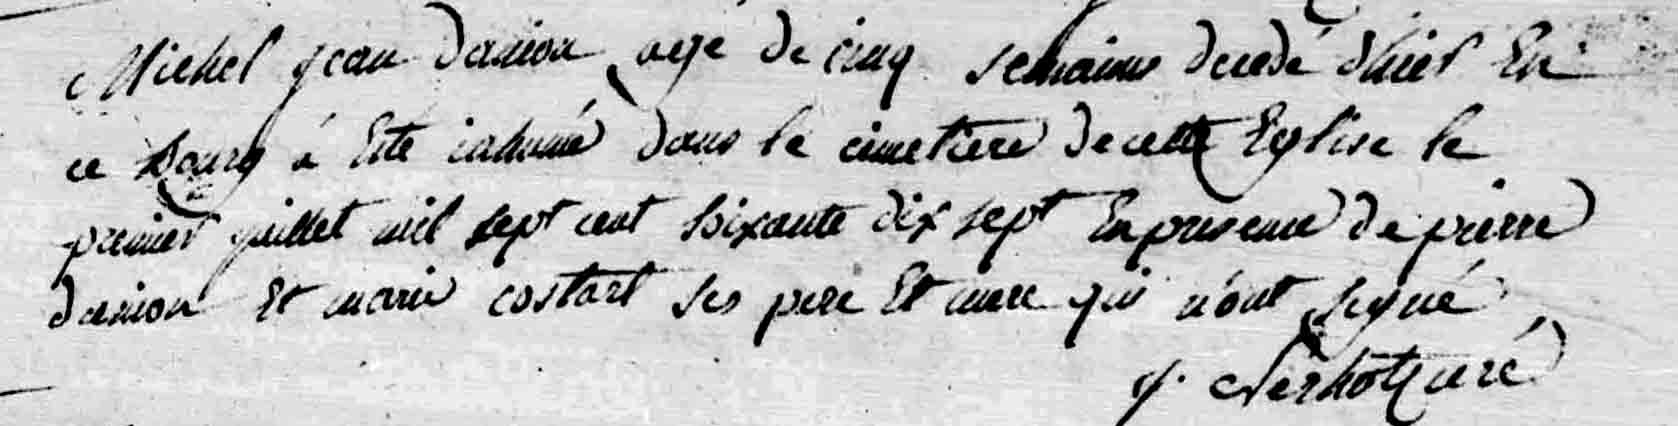 Michel jean danion agé de cinq semaines decedé d'hier En
ce Bourg à Eté inhumé dans le cimetiere de cette Eglise le
premier juillet mil sept cent soixante dix sept En presence de pierre
danion Et marie costart ses pere Et mere qui n'ont signé
j. curé